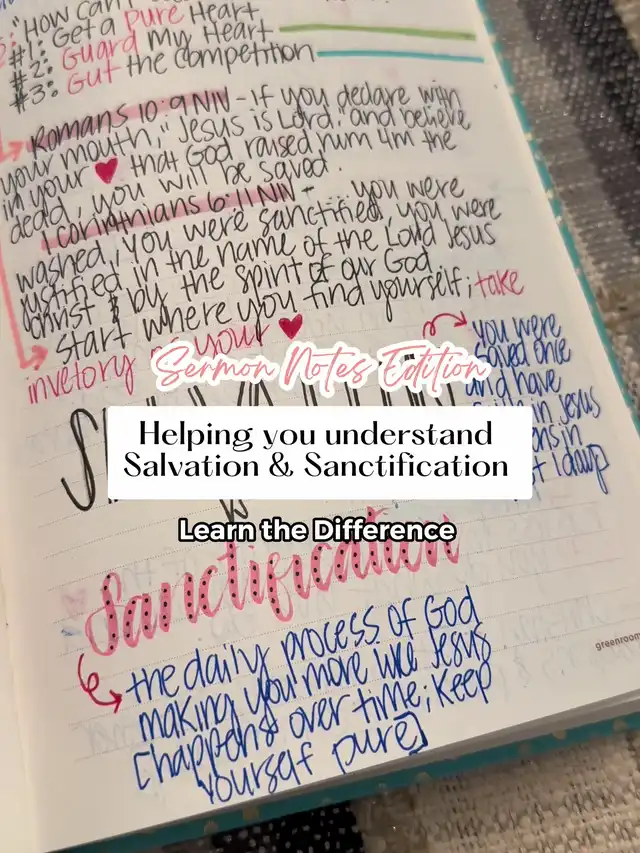 "How can
#1: Get a pure Heart
#2: Guard My Heart
#3: Gut the competition
Romans 10:9 NIV - If you declare with
your mouth, "Jesus is Lord," and believe
in your ♥ that God raised him 4m the
dead, you will be saved.
1 Corinthians 6:11 NIV - ... you were
washed, you were sanctified, you were
justified in the name of the Lord Jesus
Christ & by the spirit of our God
start where you find yourself; take
invetory of your ♥
you were
saved once
and have
in Jesus
Sermon Notes Edition
Helping you understand
Salvation & Sanctification
Learn the Difference
Sanctification
the daily process of God
making you more like Jesus
[happens over time; keep
yourself pure]
greenroom